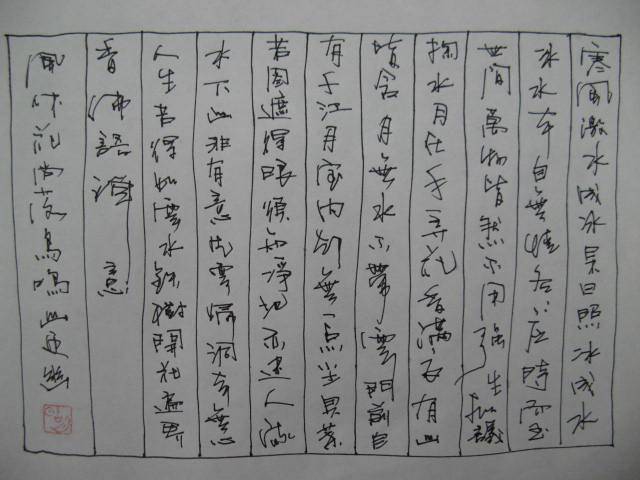 寒風激水成冰杲日照冰成水
冰水本自無情各各應時而至
世間萬物皆然不用強生擬議
掬水月在手弄花香滿衣有山
皆含月無水不帶雲門前自
有千江月室内却無一点尘貝葉
若圖遮得眼須知淨地亦迷人流
水下山非有意片雲歸洞本無心
人生若得如雲水鐵樹開花遍界
香 佛語禪意
風休花尚落鳥鳴山更幽